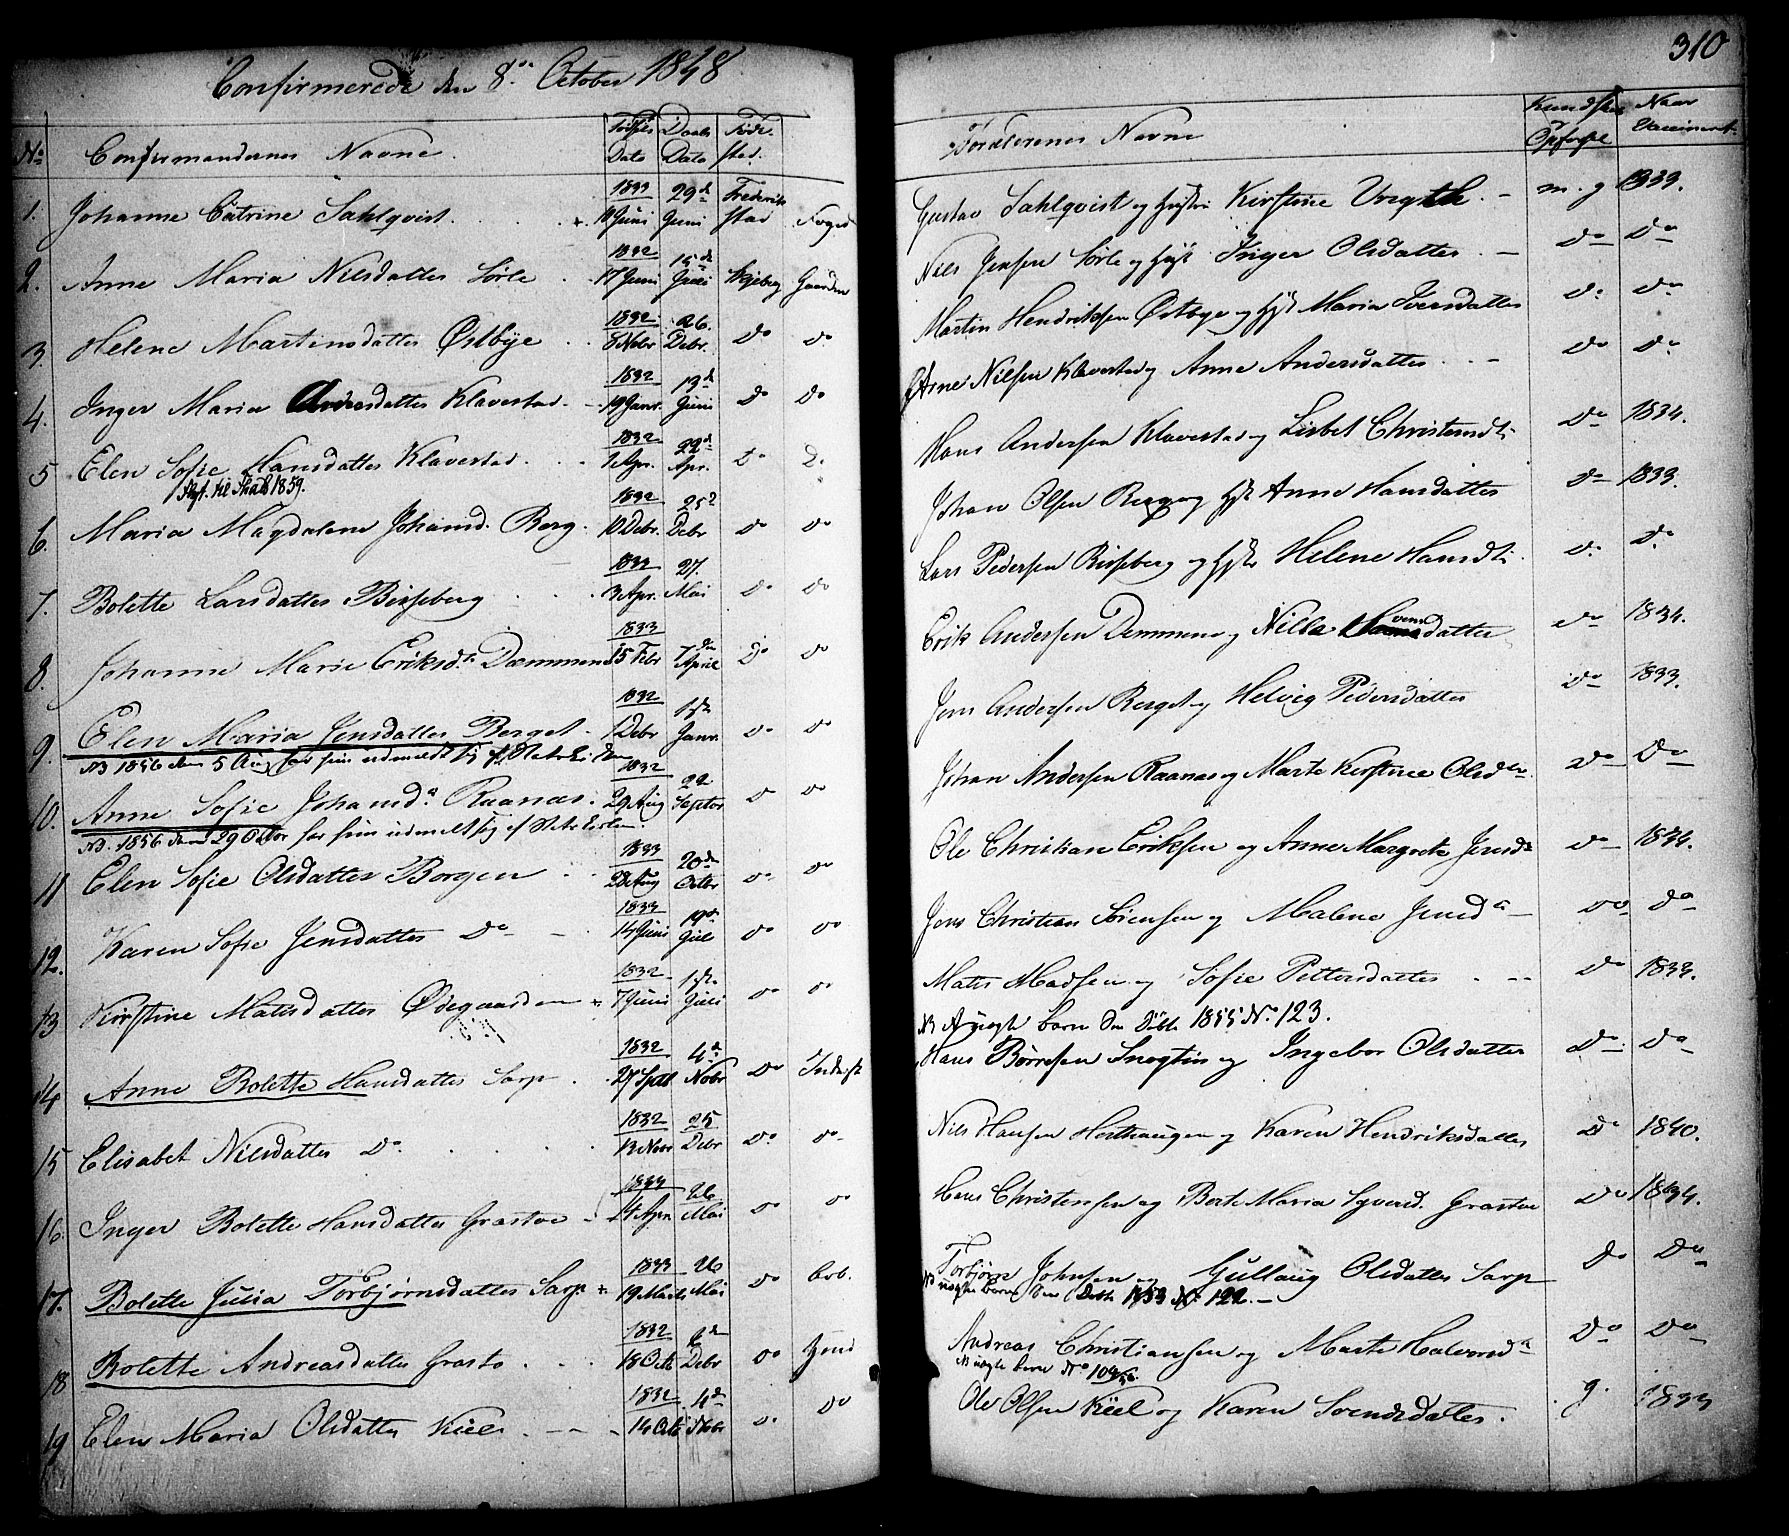 310
Confirmerede den 8de October 1848
No Confirmandernes Navne. Fødsels Dato Daabs Dato Føde sted. Forældrenes Navne Kundskab Opførsel Naar Vaccineret
1. Johanne Catrine Sahlqvist. 1833 10 Juni 29de Juni Frederikstad Foged Gustav Sahlqvist og Hustru Kirstine m. g 1833.
2. Anne Maria Nilsdatter Sørle 1832 17 Juni 15de Juli Skjeberg Gaardm Nils Jensen Sørle og Hust Inger Olsdatter. Do Do
3. Helene Martinsdatter Østbye 1832 8 Nobr 26. Debr. Do Do Martin Hendriksen Østbye og Hust Maria Iversdatter Do Do
4. Inger Maria Andersdatter Klavestad. 1832 19 Janr. 13de Juni Do Do Arne Nilsen Klavestad og Anne Andersdatter Do Do
5 Elen Sofie Hansdatter Klavestad. 1832 1 Apr. 22de Apr. Do Do Hans Andersen Klavestad og Lisbet Christensdtr Do 1834.
Flyt. til 1859.
6. Maria Magdalene Johansd. Berg. 1832 10 Debr. 25de Debr Do Do Johan Olsen Berg og Hust Anne Hansdatter Do 1833.
7. Bolette Larsdatter Bisseberg 1832 3 Apr. 27. Mai Do Do Lars Pedersen Bisseberg og Hust Helene Hansdtr Do Do
8. Johanne Marie Eriksdtr Dæmmen 1833 15 Febr 7de April Do Do Erik Andersen Demmen og Nilla Svensdatter Do 1834.
9. Elen Maria Jensdatter Berget 1832 1 Debr 1ste Janr. Do Do Jens Andersen Berget og Helvig Pedersdatter Do 1833.
NB 1856 den 5 Aug har hun udmeldt sig af Statskirken
10. Anne Sofie Johansda Raanaas. 1832 29 Aug 22 Septbr Do Do Johan Andersen Raanaas og Marte Kirstine Olsdtr. Do Do
NB. 1856 den 29 Octbr har hun udmeldt sig af Statskirken.
11 Elen Sofie Olsdatter Borgen 1833 28 Aug 20de Octbr Do Do Ole Christian Eriksen og Anne Margrete Jensdtr Do 1834.
12. Karen Sofie Jensdatter Do 1833 14 Juni 19de Jul Do Do Jens Christian Sørensen og Malene Jensda Do Do
13 Kirstine Matisdatter Ødegaarden 1832 7 Juni 1ste Juli Do Do Matis Madsen og Sofie Pettersdatter Do 1833.
NB Auægte barn See Døbte 1855 No 123.
14 Anne Bolette Hansdatter Sarp 1832 27 Septb 4de Nobr Do Inderst Hans Børresen og Ingebor Olsdatter Do Do
15 Elisabet Nilsdatter Do 1832 13 Novr 25 Debr Do Do Nils Hansen og Karen Hendriksdatter Do 1840.
16. Inger Bolette Hansdatter Grastve 1833 14 Apr. Mai Do Do Hans Christensen og Berte Maria Syversd. Grastve Do 1834.
17. Bolette Julia Torbjørnsdatter Sarp 1833 19 Marts Mai Do Arb. Torbjørn Johnsen og Gullaug Olsdatter Sarp Do Do
NB uægte barn See Døbte 1853 No 122.
18 Bolette Andreasdatter Grastve 1832 18 Octb 2de Debr Do Gaard Andreas Christiansen og Marte Halvorsda Do Do
NB uægte barn No 109
19 Elen Maria Olsdatter Kiil 1832 14 Octb 4de Nobr Do Do Ole Olsen Kiil og Karen Svendsdatter. g. 1833